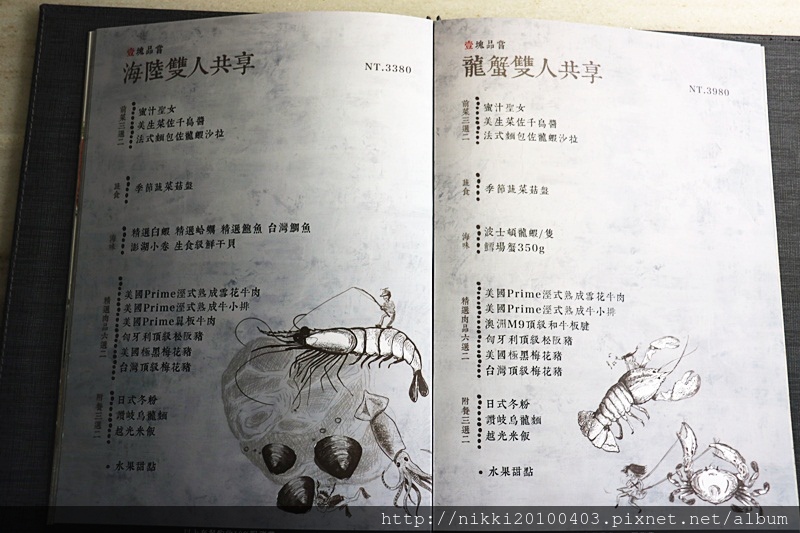 壹塊品嘗
海陸雙人共享
NT.3380
前菜三選二
蜜汁聖女
美生菜佐千島醬
法式麵包佐龍蝦沙拉
蔬食
季節蔬菜菇盤
海味
精選白蝦 精選蛤蠣 精選鮑魚 台灣鯛魚
澎湖小卷 生食級鮮干貝
精選肉品六選二
美國Prime溼式熟成雪花牛肉
美國Prime溼式熟成牛小排
美國Prime翼板牛肉
匈牙利頂級松阪豬
美國極黑梅花豬
台灣頂級梅花豬
附餐三選二
日式冬粉
讚岐烏龍麵
越光米飯
水果甜點
壹塊品嘗
龍蟹雙人共享
NT.3980
前菜三選二
蜜汁聖女
美生菜佐千島醬
法式麵包佐龍蝦沙拉
蔬食
季節蔬菜菇盤
海味
波士頓龍蝦/隻
鱈場蟹350g
精選肉品六選二
美國Prime溼式熟成雪花牛肉
美國Prime溼式熟成牛小排
澳洲M9頂級和牛板腱
匈牙利頂級松阪豬
美國極黑梅花豬
台灣頂級梅花豬
附餐三選二
日式冬粉
讚岐烏龍麵
越光米飯
水果甜點
http://nikki20100403.pixnet.net/album